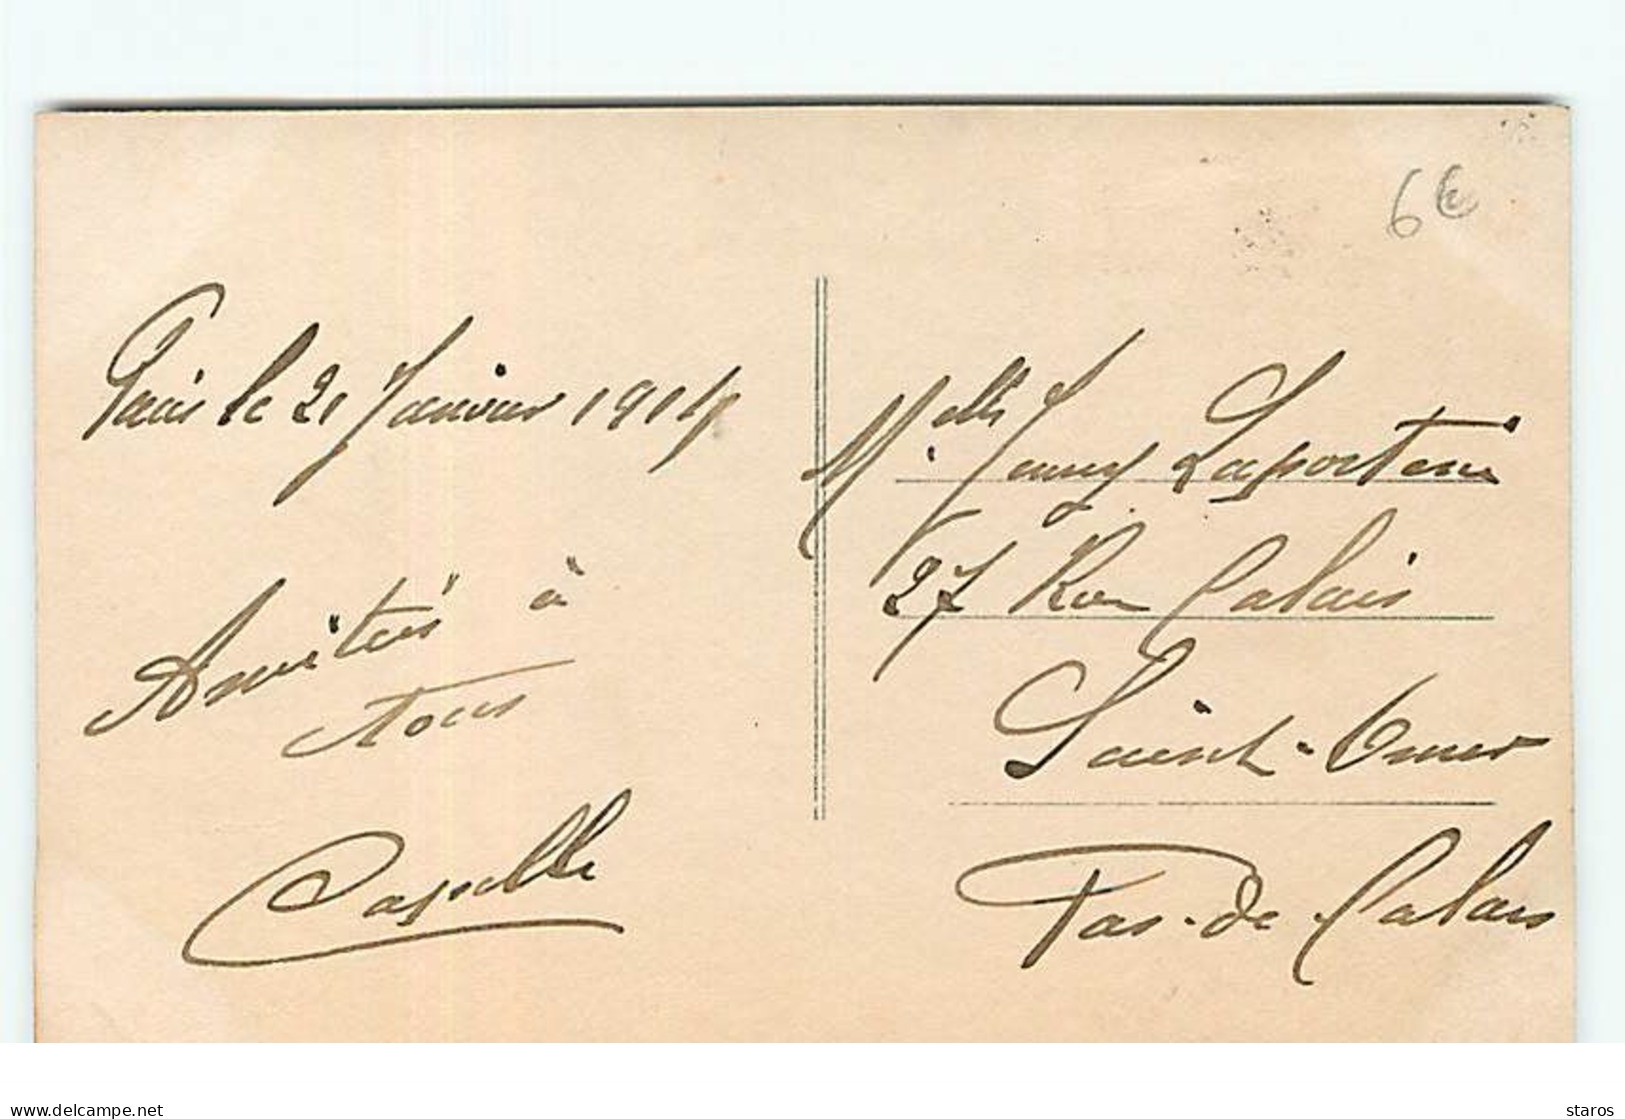 6€
Paris le 21 Janvier 1914
Amitiés à
tous
Capelle
Melle Fanny
27 Rue Calais
Saint-Omer
Pas-de-Calais
delcampe.net
staros